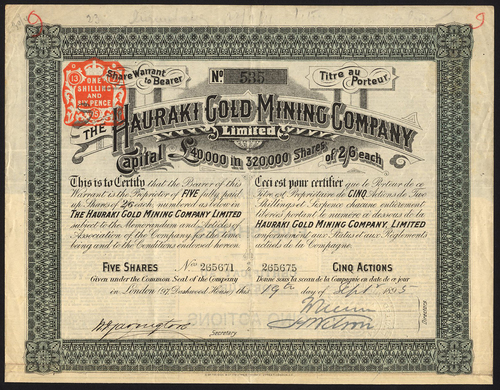 Share Warrant
to Bearer
Nº 535
Titre au
Porteur.
13
ONE
SHILLING
AND
SIXPENCE
THE HAURAKI GOLD MINING COMPANY
Limited
Capital £40,000 in 320,000 Shares of 2/6 each
This is to Certify that the Bearer of this
Warrant is the Proprietor of FIVE fully paid
up Shares of 2/6 each, numbered as below in
THE HAURAKI GOLD MINING COMPANY LIMITED
subject to the Memorandum and Articles of
Association of the Company for the time
being and to the Conditions endorsed hereon
Ceci est pour certifier que le Porteur de ce
Titre est Propriétaire de CINQ Actions de Two
Shillings et Sixpence chacune entièrement
libérées portant le numéro ci dessous de la
HAURAKI GOLD MINING COMPANY, LIMITED
conformément aux Statuts et aux Règlements
actuels de la Compagnie.
FIVE SHARES Nos 265671 265675 CINQ ACTIONS
Given under the Common Seal of the Company Donné sous le sceau de la Compagnie en date de ce jour
in London (97 Dashwood House) this 19th day of Sept 1895
Secretary
Directors